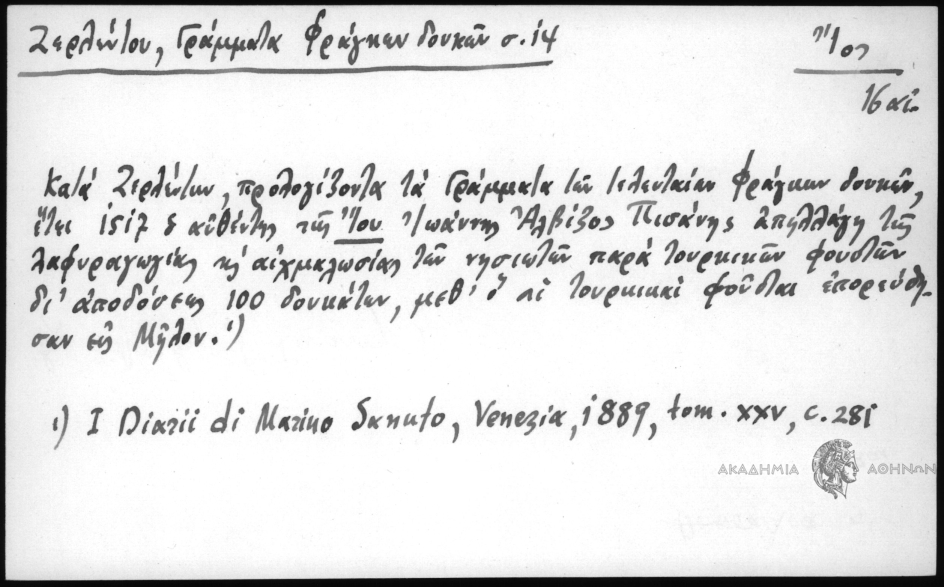 Ζερλέντου, Γράμματα Φράγκων δουκῶν σ. 14
Ἴος
16 αἰ.
Κατά Ζερλέντην, προλογίζοντα τὰ Γράμματα τῶν τελευταίων Φράγκων δουκῶν,
ἔτει 1517 ὁ αὐθέντης τῆς Ἴου Ἰωάννης Ἀλβίζος Πισάνης ἀπηλλάγη τῆς
λαφυραγωγίας κ' αἰχμαλωσίας τῶν νησιωτῶν παρά τουρκικῶν φουστῶν
δι' ἀποδόσεως 100 δουκάτων, μεθ' ὅ αἱ τουρκικαὶ φοῦσται ἐπορεύθη-
σαν εἰς Μῆλον. 1)
1) I Diarii di Marino Sanuto, Venezia, 1889, tom. XXV, c. 281
ΑΚΑΔΗΜΙΑ ΑΘΗΝΩΝ